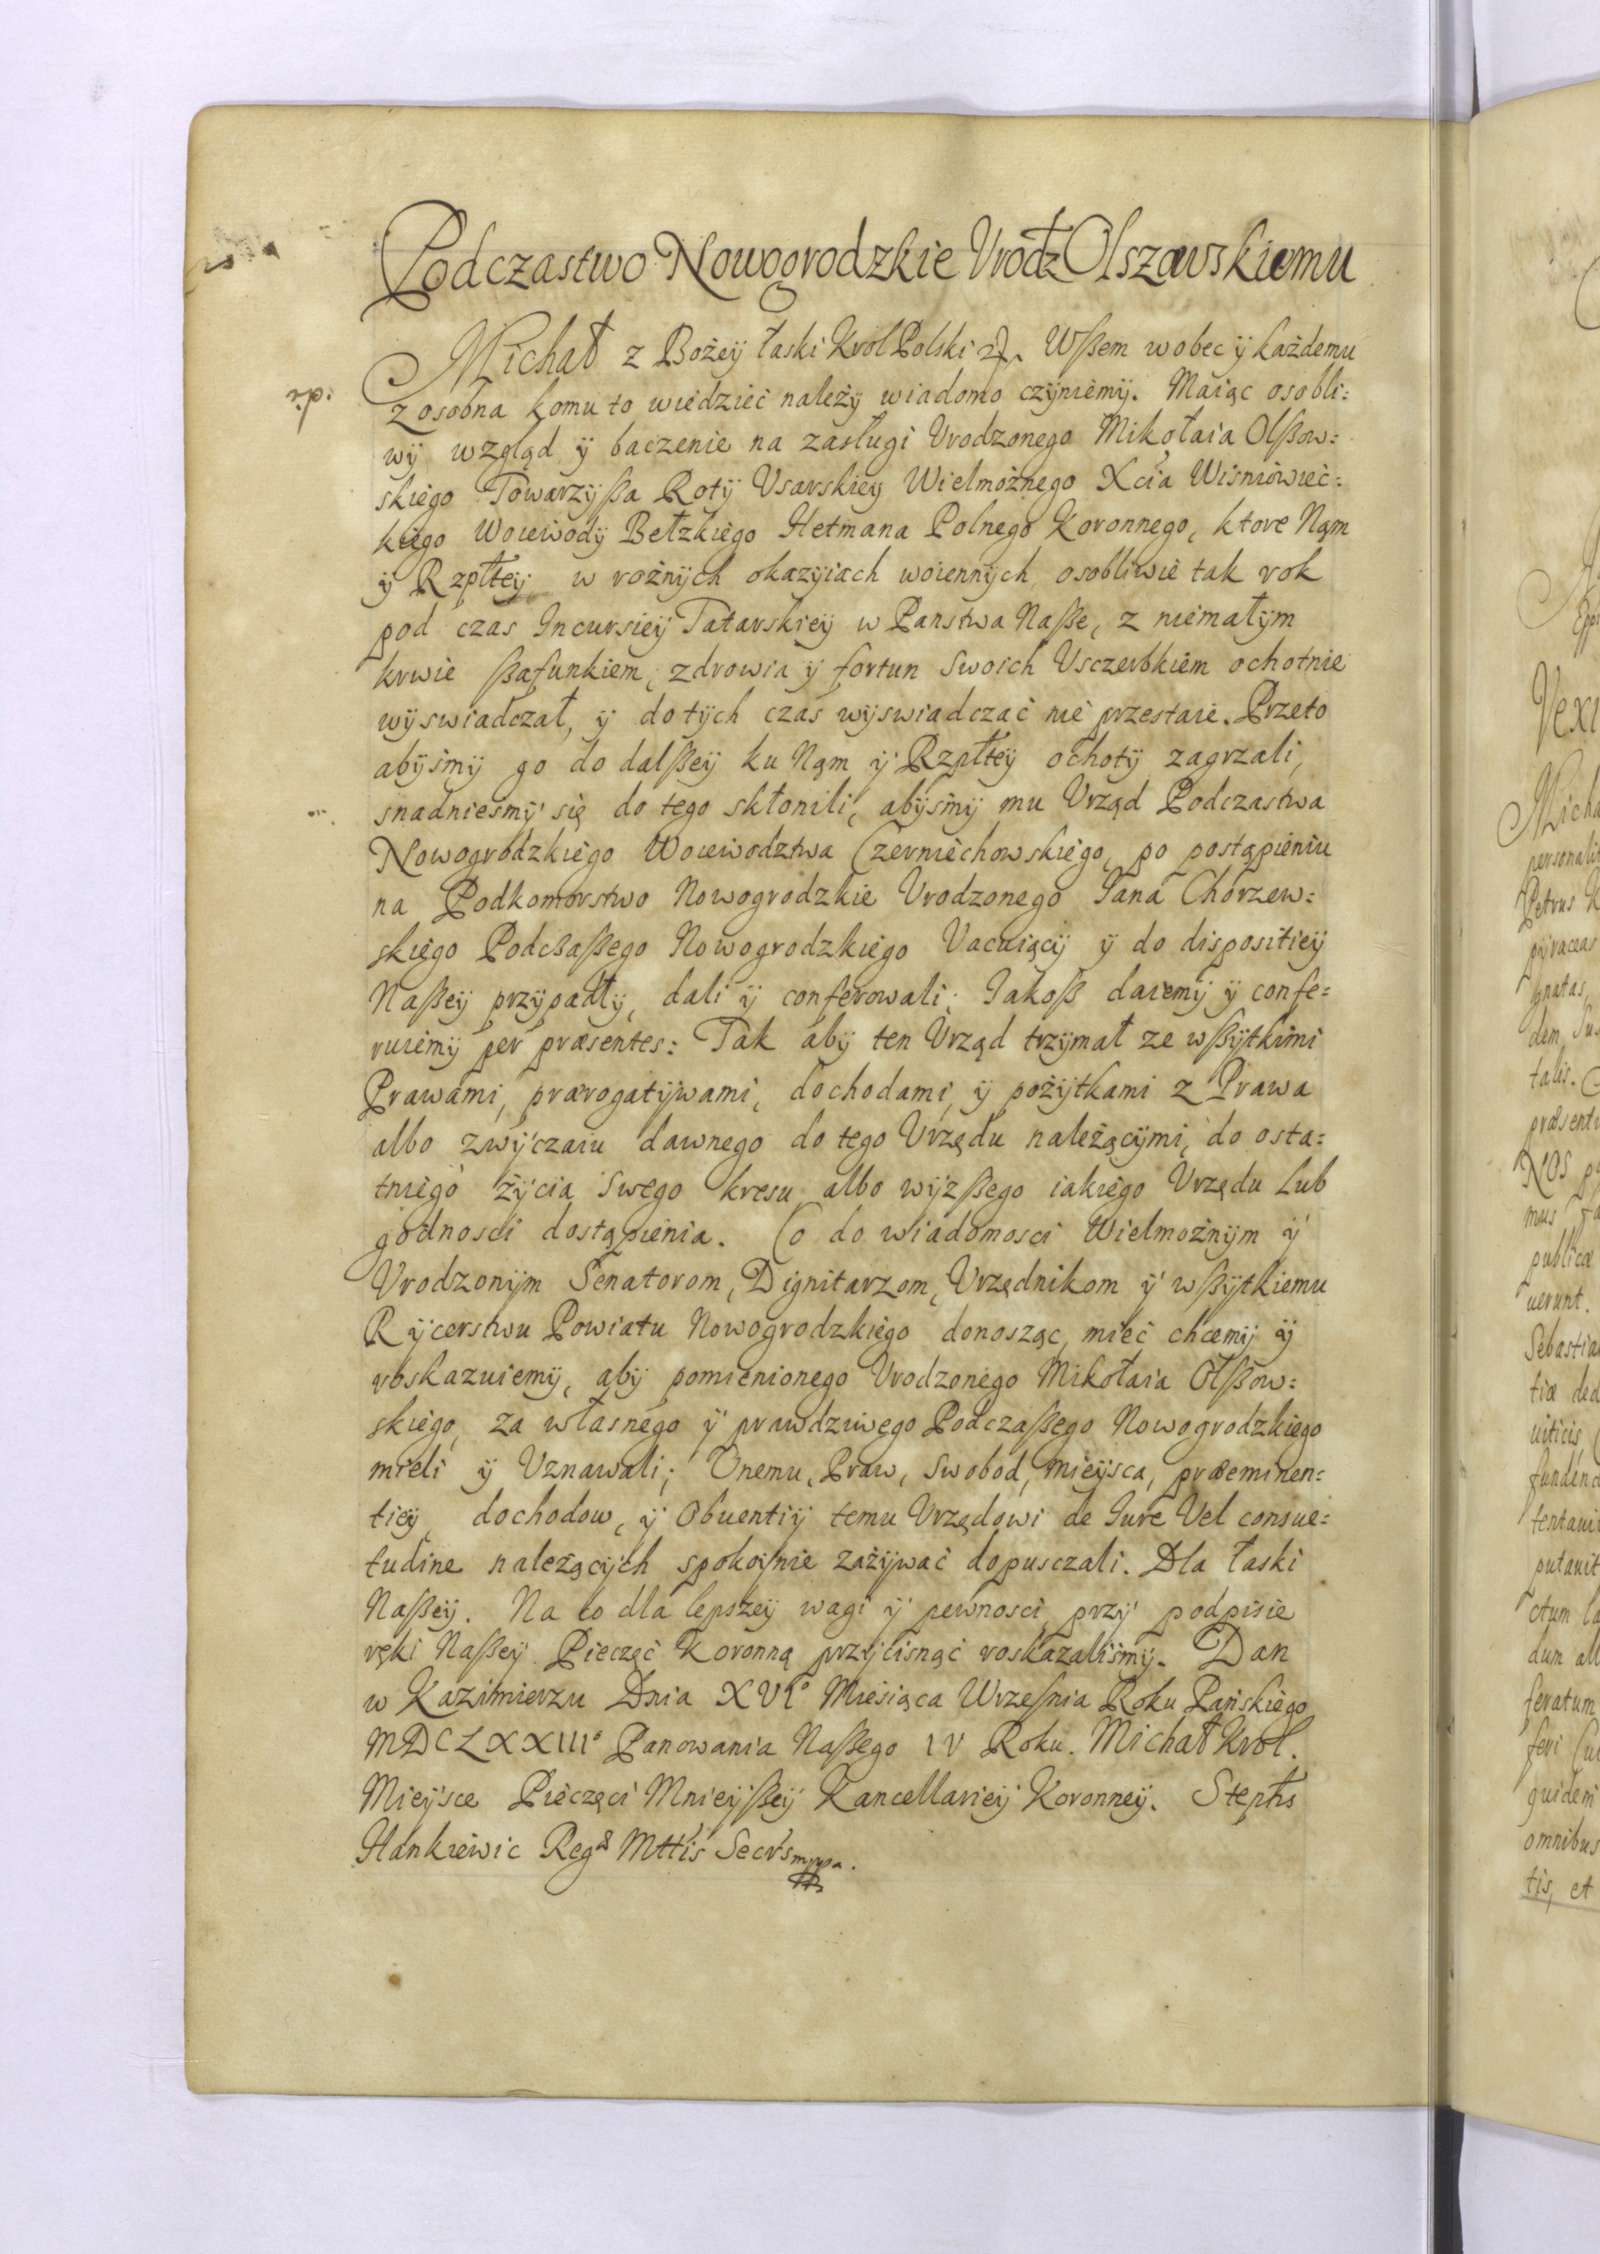 Podczastwo Nowogrodzkie Vrodz Olszewskiemu
Michał z Bożey łaski Krol Polski Wßem wobec ÿ każdemu
z osobna komu to wiedzieć należÿ wiadomo czÿniemÿ. Maiąc osobli:
wÿ wzgląd ÿ baczenie na zasługi Vrodzonego Mikołaia Olßow:
skiego Towarzÿßa Rotÿ Vsarskieÿ Wielmożnego Xcia Wisniowiec:
kiego Woiewodÿ Bełzkiego Hetmana Polnego Koronnego, ktore Nąm
ÿ Rzpłteÿ w rożnÿch okazÿiach woiennÿch, osobliwie tak rok
pod czas Incursieÿ Tatarskieÿ w Panstwa Naße, z niemałÿm
krwie ßafunkiem, zdrowia ÿ fortun Swoich Vsczerbkiem ochotnie
wÿswiadczał, ÿ do tÿch czas wÿswiadczać nie przestaie. Przeto
abÿsmÿ go do dalßeÿ ku Nąm ÿ Rzpłteÿ ochotÿ zagrzali,
snadniesmÿ się do tego skłonili, abÿsmÿ mu Vrząd Podczastwa
Nowogrodzkiego Woiewodztwa Czerniechowskiego, po postąpieniu
na Podkomorstwo Nowogrodzkie Vrodzonego Iana Chorzew:
skiego Podcßaßego Nowogrodzkiego Vacuiącÿ ÿ do dispositieÿ
Naßeÿ przÿpadłÿ, dali ÿ conferowali; Iakoß daiemÿ ÿ confe:
ruiemÿ per præsentes: Tak abÿ ten Vrząd trzÿmał ze wßÿtkimi
Prawami, prærogatÿwami, dochodami, ÿ pożÿtkami z Prawa
albo zwÿczaiu dawnego do tego Vrzędu należącÿmi, do osta:
tniego żÿcia Swego kresu albo wÿzßego iakiego Vrzędu Lub
godnosci dostąpienia. Co do wiadomosci Wielmożnÿm ÿ
Vrodzonÿm Senatorom, Dignitarzom, Vrzędnikom ÿ wßÿtkiemu
Rÿcerstwu Powiatu Nowogrodzkiego donosząc, mieć chcemÿ ÿ
roskazuiemÿ, abÿ pomienionego Vrodzonego Mikołaia Olßow:
skiego, za własnego ÿ prawdziwego Podczaßego Nowogrodzkiego
mieli ÿ Vznawali; Onemu, Praw, Swobod, mieÿsca, præeminen:
tieÿ, dochodow, ÿ Obuentiÿ temu Vrzędowi de Iure Vel consue:
tudine należącÿch spokoÿnie zażÿwać dopusczali. Dla łaski
Naßeÿ. Na to dla lepszeÿ wagi ÿ pewnosci, przÿ podpisie
ręki Naßeÿ Pieczęć Koronną przÿcisnąć roskazalismÿ. Dan
w Kazimierzu Dnia XVI° Miesiąca Wrzesnia Roku Pańskiego
MDCLXXIII° Panowania Naßego IV Roku. Michał Krol.
Mieÿsce Pieczęci Mnieÿßeÿ Kancellarieÿ Koronneÿ. Stephs
Hankiewic Reg Mttis Secrs mppa.